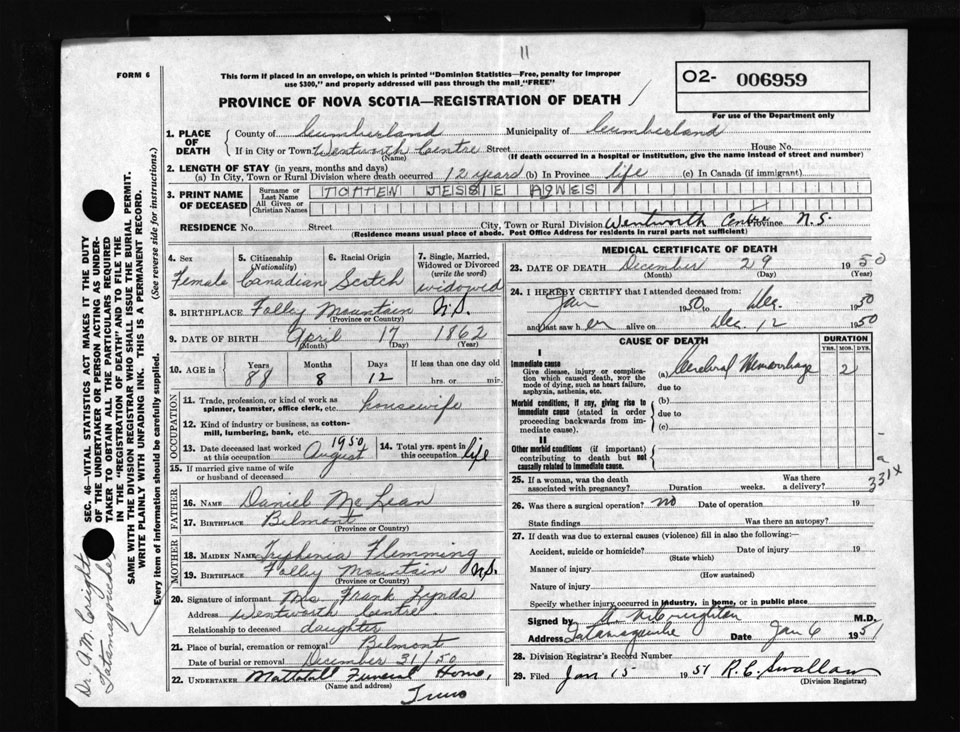 11
FORM 6
This form if placed in an envelope, on which is printed "Dominion Statistics—Free, penalty for improper
use $300," and properly addressed will pass through the mail "FREE"
O2- 006959
PROVINCE OF NOVA SCOTIA—REGISTRATION OF DEATH
For use of the Department only
1. PLACE OF DEATH
County of Cumberland Municipality of Cumberland
If in City or Town Wentworth Centre Street House No.
(Name) (If death occurred in a hospital or institution, give the name instead of street and number)
2. LENGTH OF STAY (in years, months and days)
(a) In City, Town or Rural Division where death occurred 12 years (b) In Province life (c) In Canada (if immigrant)
3. PRINT NAME OF DECEASED
Surname or Last Name TOTTEN JESSIE AGNES
All Given or Christian Names
RESIDENCE No. Street City, Town or Rural Division Wentworth Centre Province N.S.
(Residence means usual place of abode. Post Office Address for residents in rural parts not sufficient)
4. Sex Female
5. Citizenship (Nationality) Canadian
6. Racial Origin Scotch
7. Single, Married, Widowed or Divorced (write the word) widowed
8. BIRTHPLACE Folley Mountain N.S.
(Province or Country)
9. DATE OF BIRTH April 17 1862
(Month) (Day) (Year)
10. AGE in Years 88 Months 8 Days 12 If less than one day old
hrs. or min.
OCCUPATION
11. Trade, profession, or kind of work as
spinner, teamster, office clerk, etc. housewife
12. Kind of industry or business, as cotton-
mill, lumbering, bank, etc.
13. Date deceased last worked at this occupation August 1950
14. Total yrs. spent in this occupation life
15. If married give name of wife
or husband of deceased
FATHER
16. NAME Daniel McLean
17. BIRTHPLACE Belmont
(Province or Country)
MOTHER
18. MAIDEN NAME Triphenia Flemming
19. BIRTHPLACE Folley Mountain N.S.
(Province or Country)
20. Signature of informant Mrs Frank
Address Wentworth Centre
Relationship to deceased daughter
21. Place of burial, cremation or removal Belmont
Date of burial or removal December 31/50
22. UNDERTAKER Mattatall Funeral Home,
(Name and address) Truro
MEDICAL CERTIFICATE OF DEATH
23. DATE OF DEATH December 29 1950
(Month) (Day) (Year)
24. I HEREBY CERTIFY that I attended deceased from:
Jan 1950 to Dec. 1950
and last saw her alive on Dec 12 1950
CAUSE OF DEATH DURATION
YRS. MOS. DYS.
I
Immediate cause
Give disease, injury or complication which caused death, not the mode of dying, such as heart failure, asphyxia, asthenia, etc.
(a) Cerebral Hemorrhage 2
due to
Morbid conditions, if any, giving rise to immediate cause (stated in order proceeding backwards from immediate cause).
(b)
due to
(c)
II
Other morbid conditions (if important) contributing to death but not causally related to immediate cause.
331X
25. If a woman, was the death Was there
associated with pregnancy? Duration weeks. a delivery?
26. Was there a surgical operation? no Date of operation 19
State findings Was there an autopsy?
27. If death was due to external causes (violence) fill in also the following:—
Accident, suicide or homicide? Date of injury 19
(State which)
Manner of injury
(How sustained)
Nature of injury
Specify whether injury occurred in industry, in home, or in public place
Signed by M.D.
Address Tatamagouche Date Jan 6 1951
28. Division Registrar's Record Number
29. Filed Jan 15 1951 R.C. Swallow
(Division Registrar)
SEC. 46—VITAL STATISTICS ACT MAKES IT THE DUTY
OF THE UNDERTAKER OR PERSON ACTING AS UNDER-
TAKER TO OBTAIN ALL THE PARTICULARS REQUIRED
IN THE "REGISTRATION OF DEATH" AND TO FILE THE
SAME WITH THE DIVISION REGISTRAR WHO SHALL ISSUE THE BURIAL PERMIT.
WRITE PLAINLY WITH UNFADING INK. THIS IS A PERMANENT RECORD.
Every item of information should be carefully supplied. (See reverse side for instructions.)
Dr. Creighton
Tatamagouche